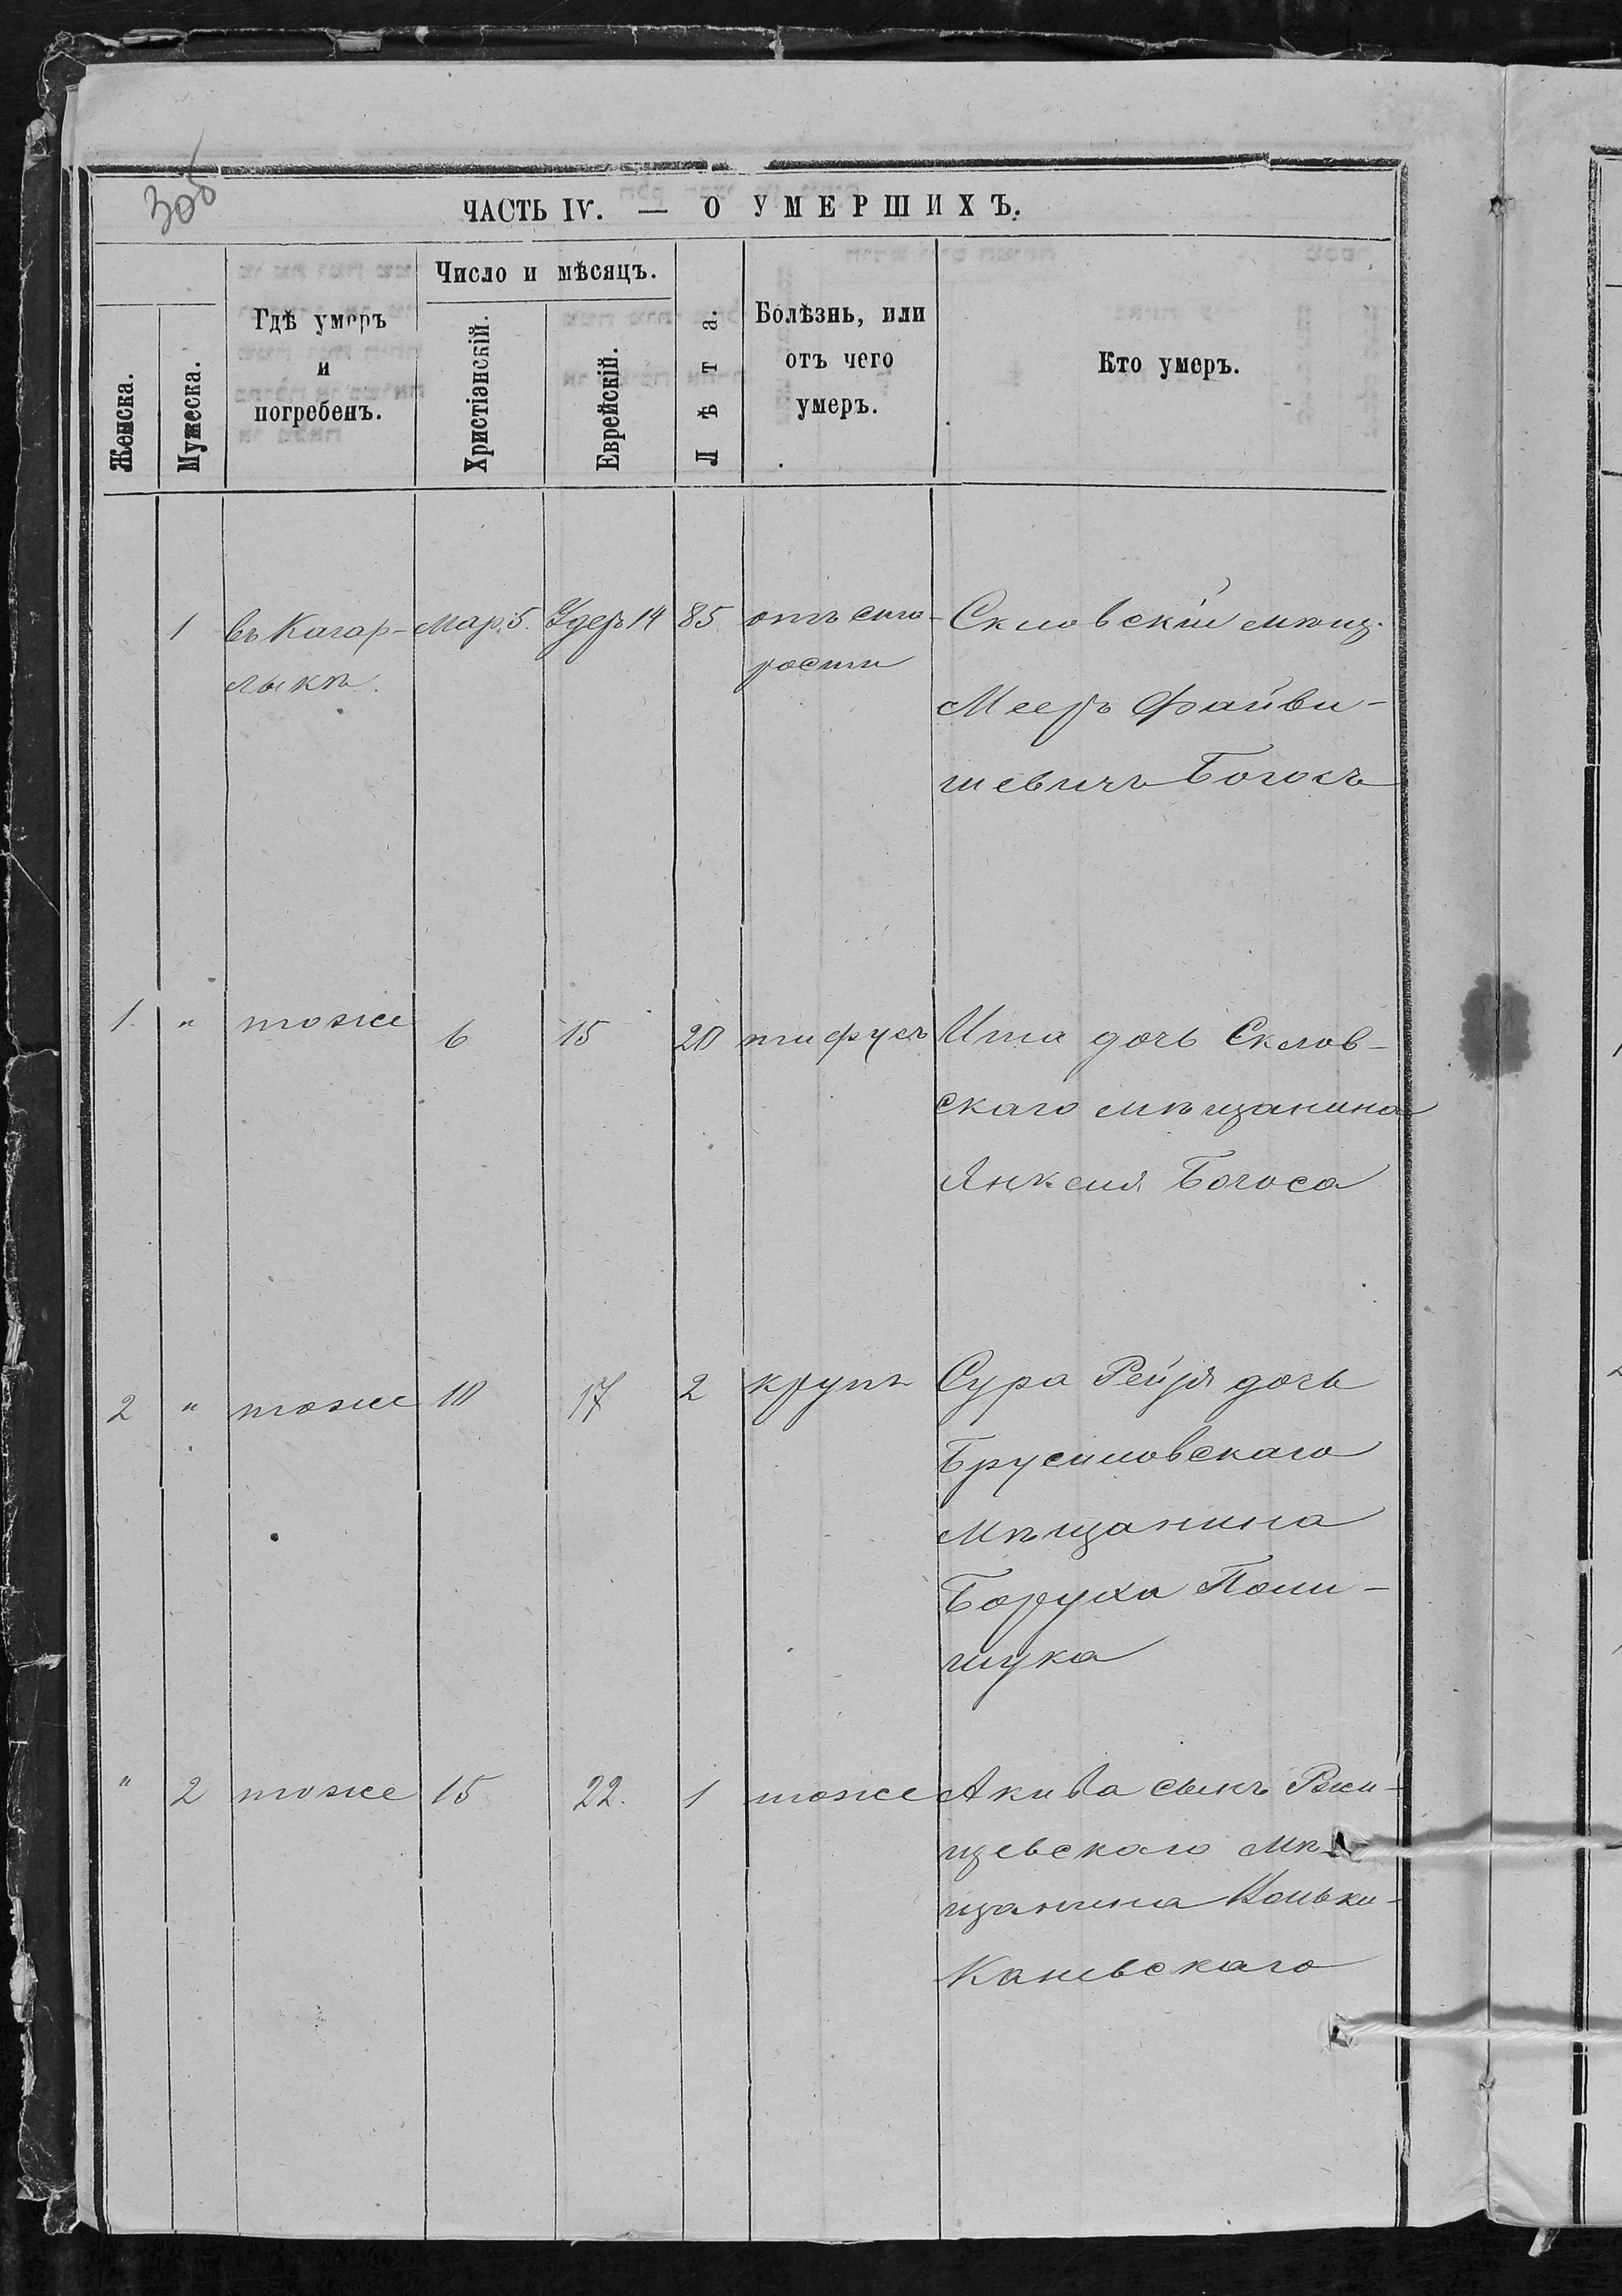 306
ЧАСТЬ IV. — О УМЕРШИХЪ.
Женска.
Мужеска.
Гдѣ умеръ
и
погребенъ.
Число и мѣсяцъ.
Христіянскій.
Еврейскій.
Лѣта.
Болѣзнь, или
отъ чего
умеръ.
Кто умеръ.
1 въ Кагар- Мар. 5. Удеръ 14 85 отъ ста- Скловскій мѣщ.
лыкѣ. рости
Мееръ Файви-
шевичъ Богосъ
1. " тоже 6 15 20 тифусъ Ита дочь Склов-
скаго мѣщанина
Янкеля Богоса
2 " тоже 10 17 2 крупъ Сура Рейзя дочь
Брусиловскаго
мѣщанина
Боруха Поли-
щука
" 2 тоже 15 22. 1 тоже Акива сынъ Ржи-
щевскаго мѣ-
щанина
Каневскаго